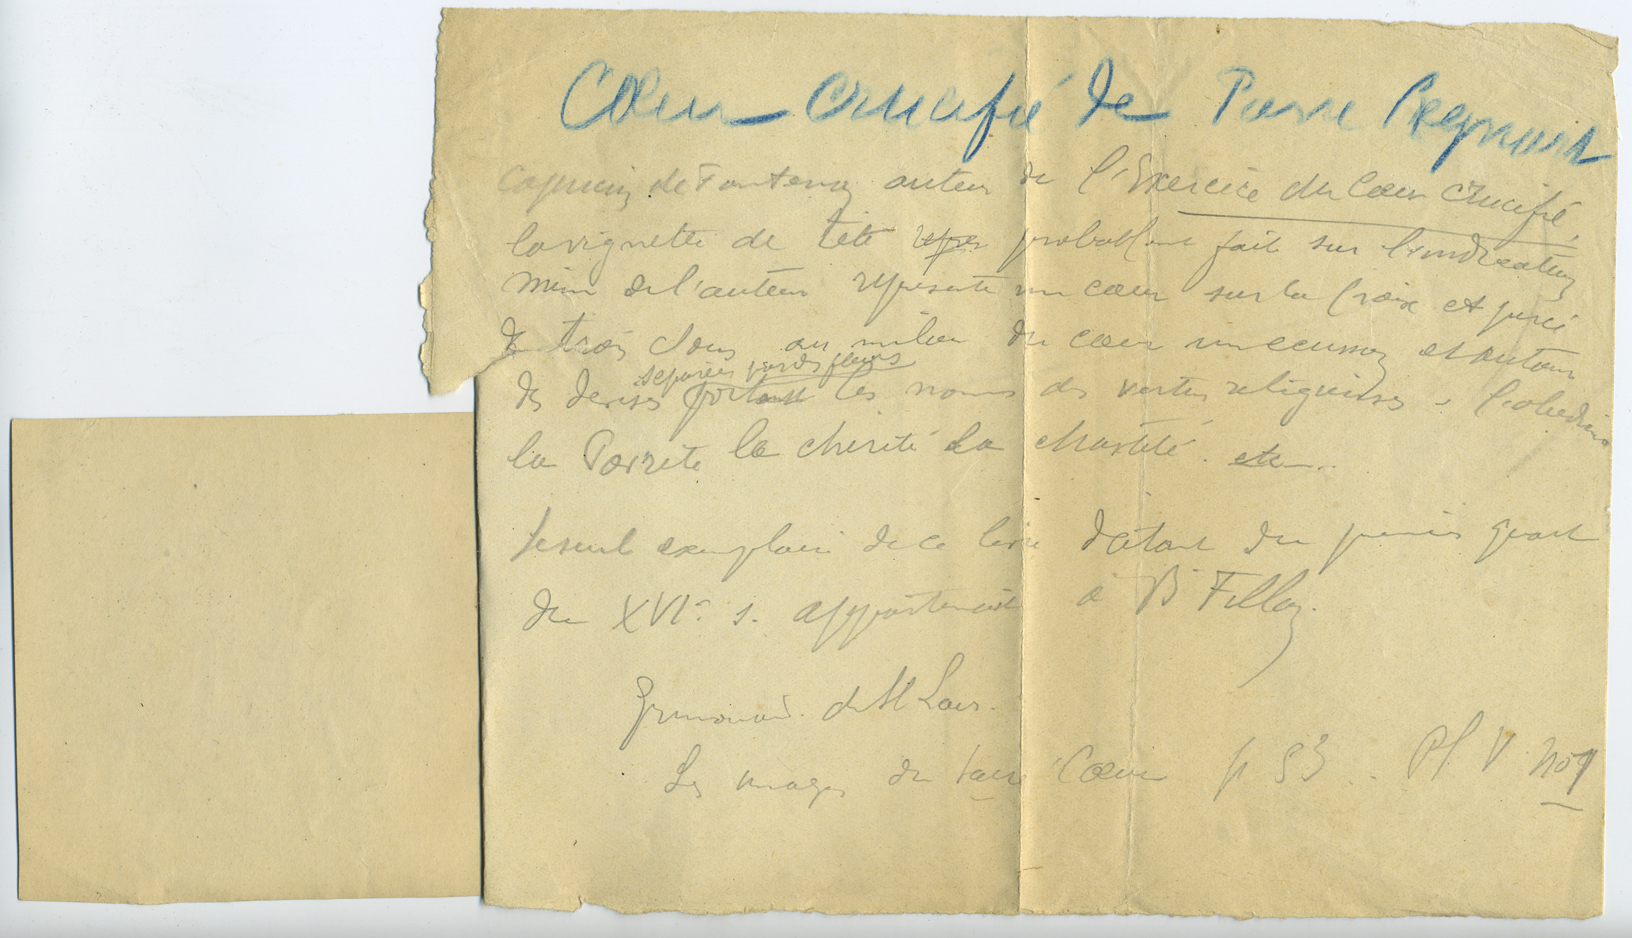 Cœur crucifié de Pierre Regnart
Capucin de Fontenay auteur de l'Exercice du Cœur crucifié,
la vignette de tête repres probablemt fait sur l'indication
même de l'auteur représente un cœur sur la Croix et percé
de trois clous au milieu du cœur un ecusson et autour
separées par des fleurs
des devises portant les noms des vertus religieuses, l'obedience
la Pavreté la cherité la chasteté. etc...
Le seul exemplaire de ce livre datant du premier quart
du XVIe s. appartenait à B Fillon.
Grimouard de St Laur.
Les images du Sacré Cœur p 53. Pl. V no 9